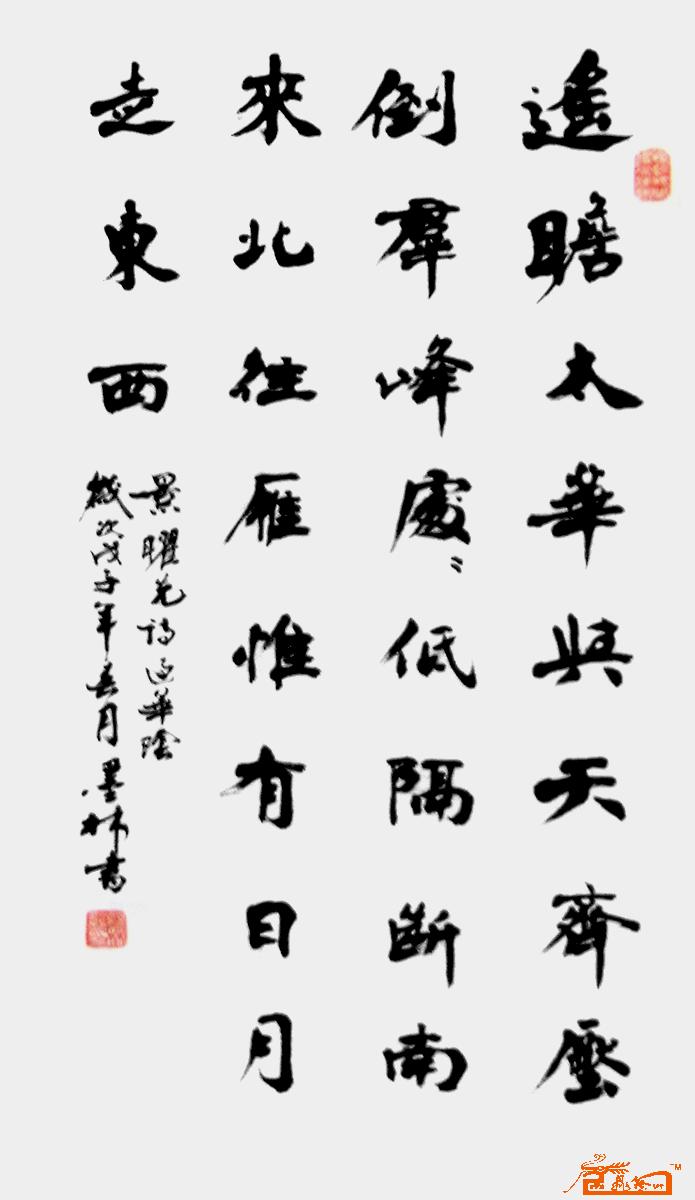 遙瞻太華與天齊壓
倒羣峰處〻低隔斷南
來北往雁惟有日月
走東西
景曜光詩過華陰
歲次戊子年春月墨林書